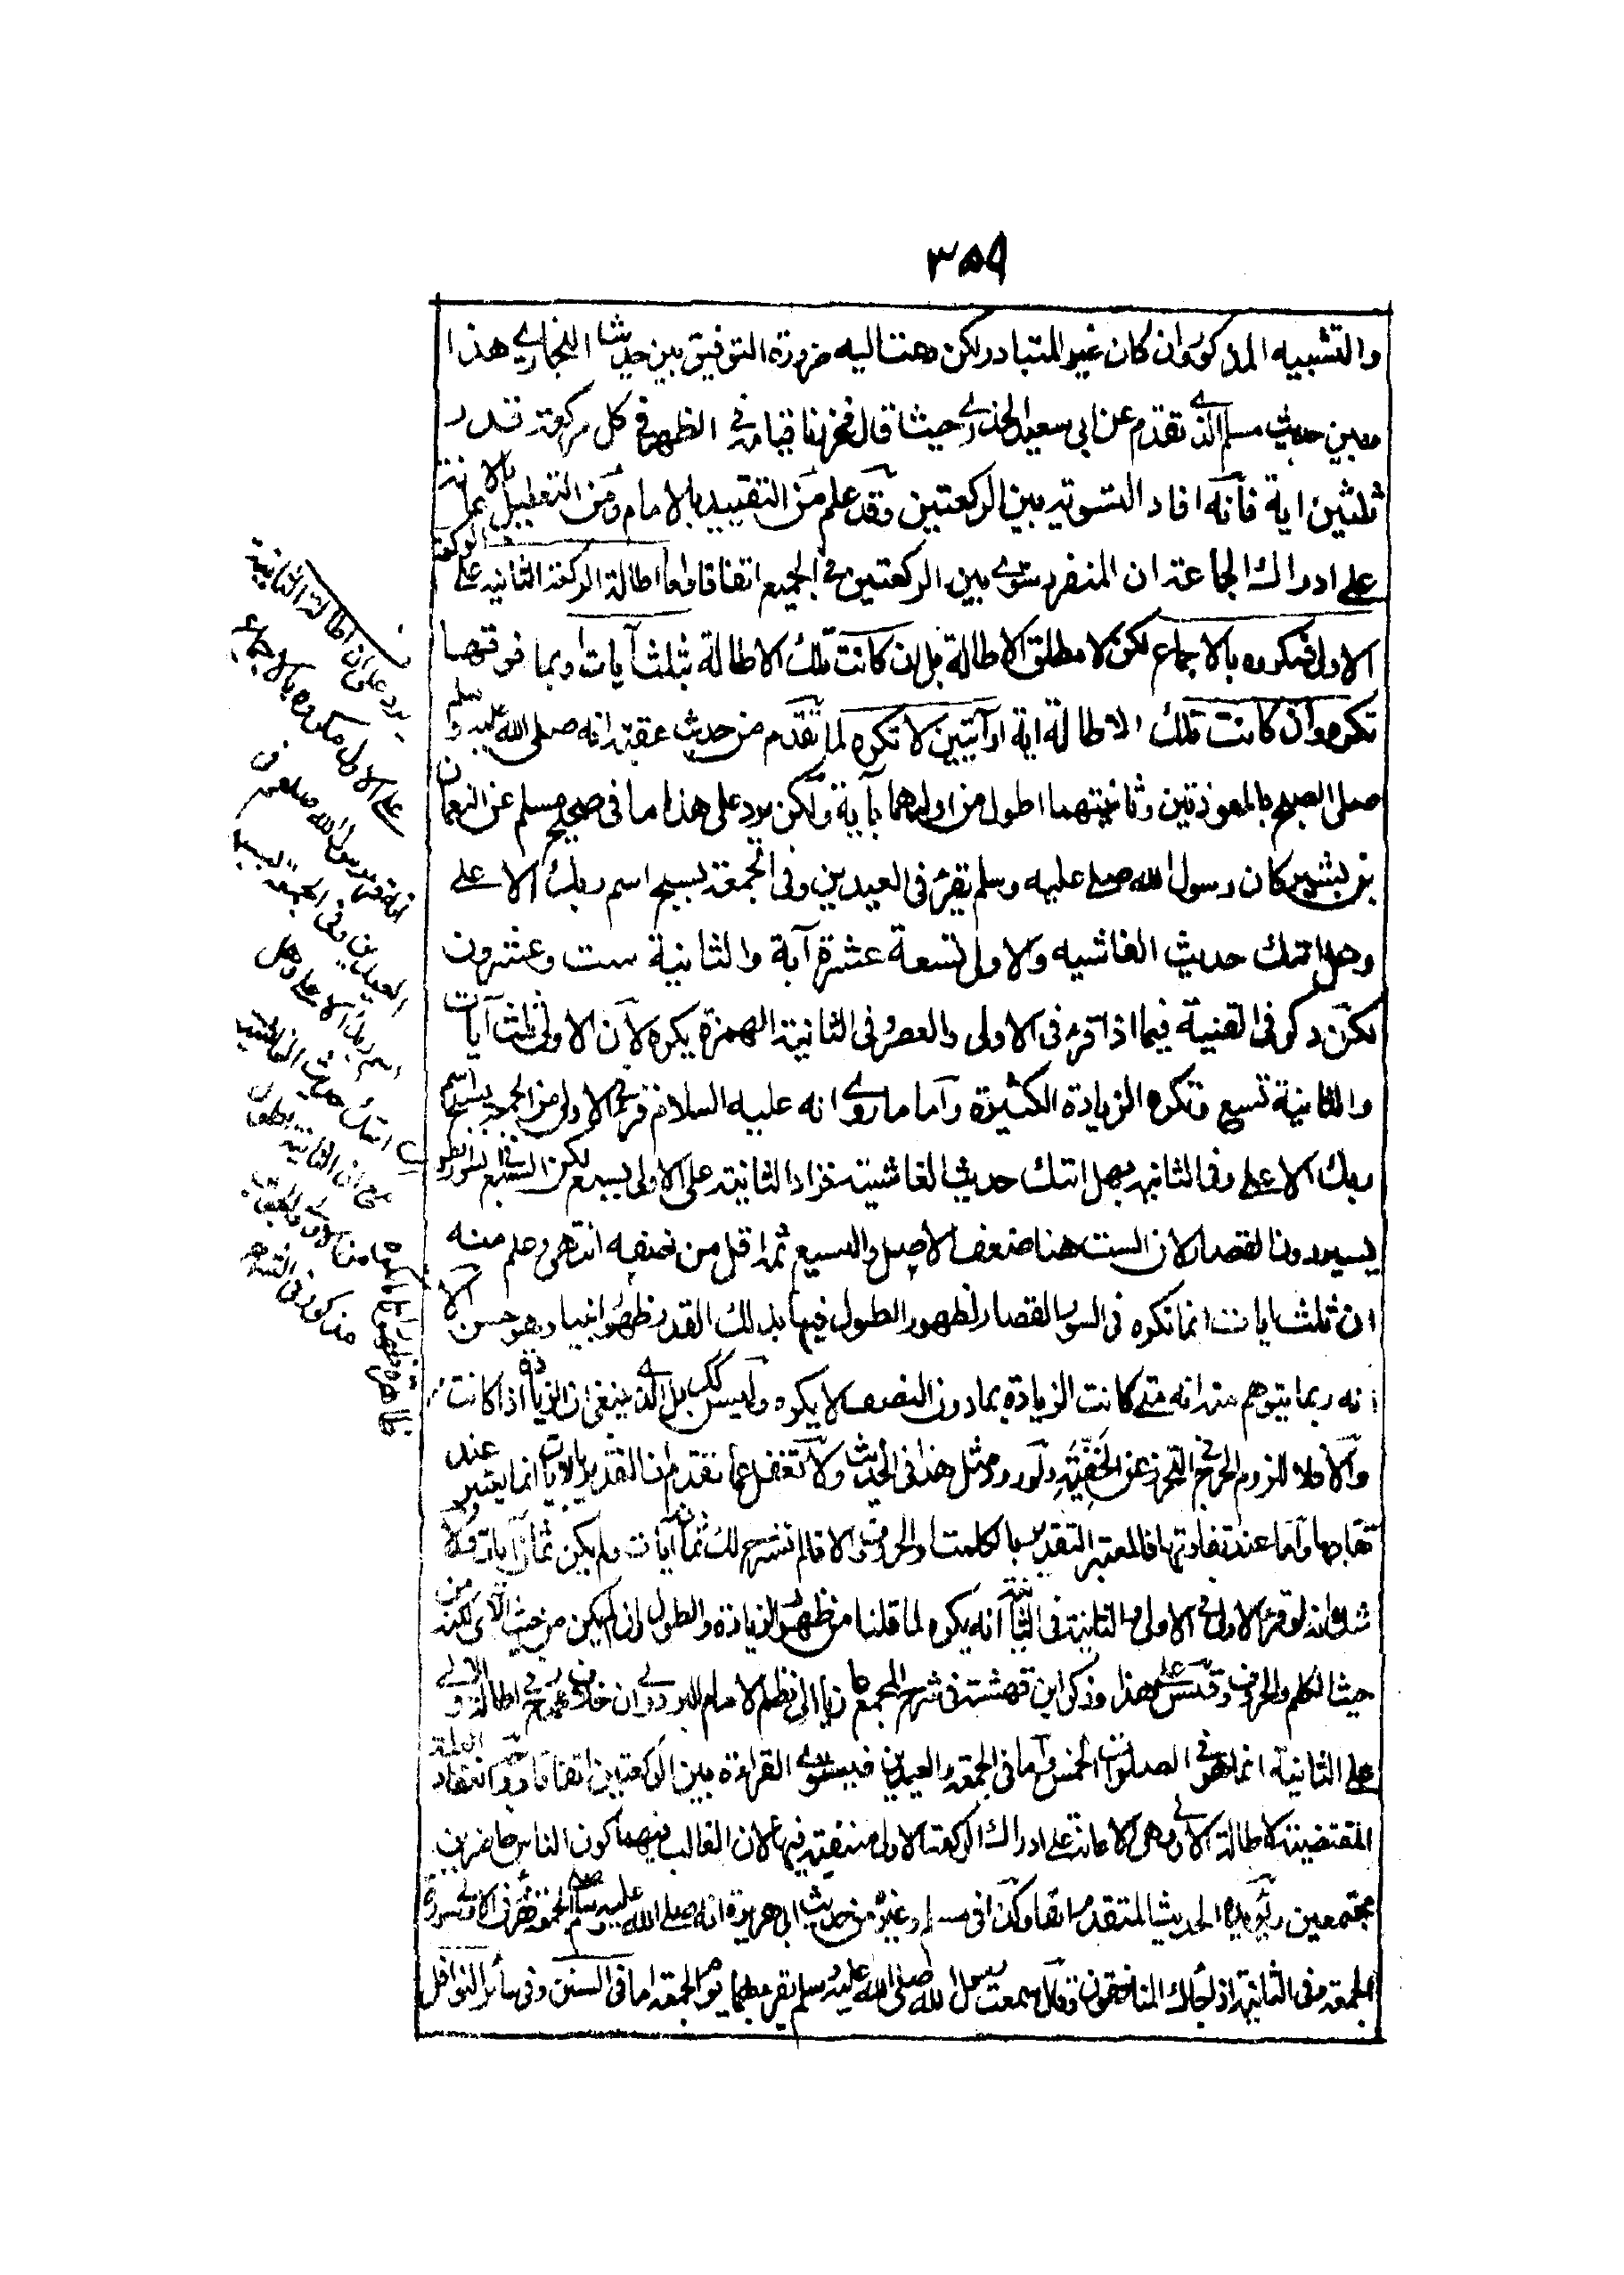 ٣٥٩
والتشبيه المذكور وان كان غير المتبادر لكن دعت اليه ضرورة التوفيق بين حديث البخاري هذا
وبين حديث مسلم الذي تقدم عن ابي سعيد الخدري حيث قال فحزرنا قيامه في الظهر في كل ركعة قدر
ثلثين اية فأنه افاد التسوية بين الركعتين وقد علم من التقييد بالامام ومن التعليل بالاعانة
على ادراك الجماعة ان المنفرد يسوي بين الركعتين في الجميع اتفاقا واما اطالة الركعة الثانية على الركعة
الاولى فمكروه بالاجماع لكن لا مطلق الاطالة بل ان كانت تلك الاطالة بثلث آيات او بما فوقها
تكره وان كانت تلك الاطالة اية او آيتين لا تكره لما تقدم من حديث عقبة انه صلى الله عليه وسلم
صلى الصبح بالمعوذتين وثانيتهما اطول من اولهما بآية ولكن يرد على هذا ما في صحيح مسلم عن النعمان
بن بشير كان رسول الله صلى عليه وسلم يقرء في العيدين وفي الجمعة بسبح اسم ربك الاعلى
وهل اتىك حديث الغاشيه والاولى تسعة عشرة آية والثانية ست وعشرون
لكن ذكر في القنية فيما اذا قرء في الاولى والعصر وفي الثانية الهمزة يكره لأن الاولى ثلث آيات
والثانية تسع وتكره الزيادة الكثيرة وأما ما روي انه عليه السلام قرء في الاولى من الجمعة بسبح اسم
ربك الاعلى وفي الثانية بهل اتىك حديث الغاشية فزاد الثانية على الاولى بسبع لكن السبع في السور الطول
يسير دون القصار لان الست هنا ضعف الاصل والسبع ثمه اقل من نصفه انتهى وعلم منه
ان ثلث ايات انما تكره في السور القصار لظهور الطول فيها بذلك القدر ظهورا بينا وهو حسن الا
انه ربما يتوهم منه انه متى كانت الزيادة بما دون النصف لا يكره وليس كك بل الذي ينبغي ان الزيادة اذا كانت
والا فلا للزوم الحرج في التحرز عن الخفية ولورود مثل هذا في الحديث ولا تغفل عما تقدم ان التقدير بالايات انما يعتبر عند
تقاربها وأما عند تفاوتها فالمعتبر التقدير بالكلمات والحروف والا فالم نشرح لك ثمان آيات ولم يكن ثمان آيات ولا
شك انه لو قرء الاولى في الاولى والثانية في الثانية أنه يكره لما قلنا من ظهور الزيادة والطول وان لم يكن من حيث الآي لكنه من
حيث الكلم والحروف وقس على هذا وذكر ابن فرشته في شرح المجمع ان خلاف محمد في اطالة الاولى
على الثانية انما هو في الصلوات الخمس وأما في الجمعة والعيدين فيسوي القراءة بين الركعتين اتفاقا العلة
المقتضية لاطالة الاولى وهي الاعانة على ادراك الركعة الاولى منتفية فيهما لان الغالب فيهما كون الناس حاضرين
مجتمعين ويؤيده الحديث المتقدم سابقا وكذا في مسلم وغيره من حديث ابي هريرة انه صلى الله عليه وسلم الجمعة فقرء في الاولى سورة
الجمعة وفي الثانية اذا جاءك المنافقون وقال سمعت رسول الله صلى الله عليه وسلم يقرء بهما يوم الجمعة اما في السنن وفي سائر النوافل
يرد على ان اطالة الثانية
على الاولى مكروه بالاجماع
انه قرء رسول الله صلعم في
العيدين وفي الجمعة بسبح
اسم ربك الاعلى وهل
اتىك حديث الغاشية
مع ان الثانية اطول
مذكور في الشرح